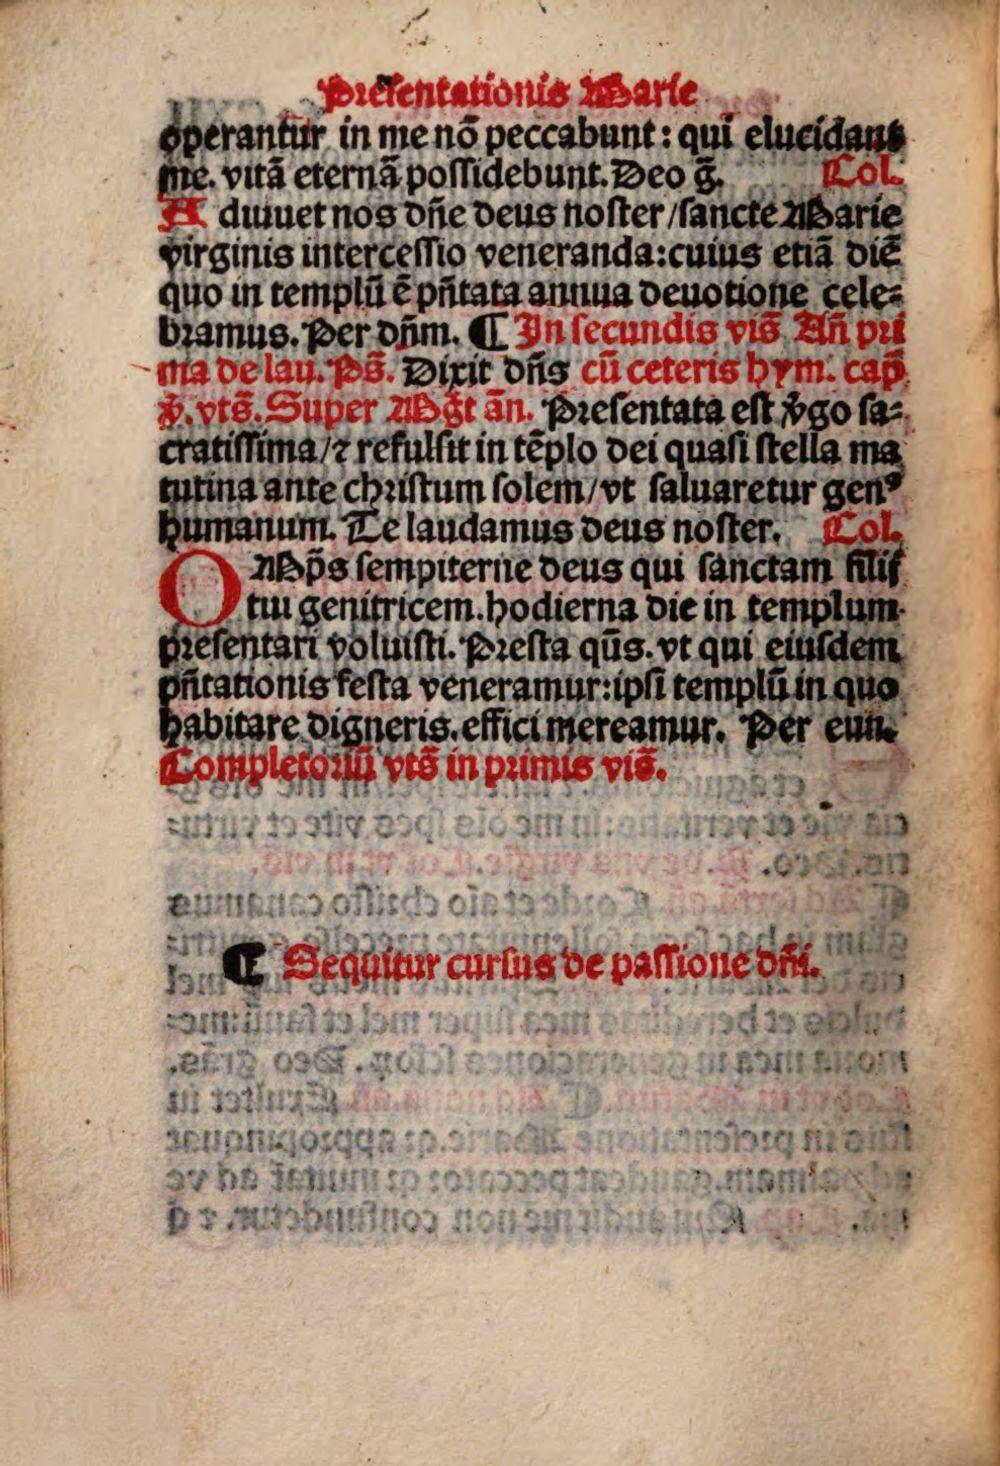 Presentationis Marie
operantur in me nō peccabunt: qui elucidant
me. vitā eternā possidebunt. Deo ḡ. Col.
Adiuuet nos dn̄e deus noster/sancte Marie
virginis intercessio veneranda:cuius etiā diē
quo in templū ē pn̄tata annua deuotione cele⸗
bramus. Per dn̄m. ¶ In secundis vis̄ An̄ pri
ma de lau. Ps̄. Dixit dn̄s cū ceteris hym. cap̄
v̄. vts̄. Super Mḡt ān. Presentata est v̄go sa⸗
cratissima/⁊ refulsit in tēplo dei quasi stella ma
tutina ante christum solem/vt saluaretur genꝰ
humanum. Te laudamus deus noster. Col.
OMp̄s sempiterne deus qui sanctam filij
tui genitricem.hodierna die in templum
presentari voluisti. Presta qūs. vt qui eiusdem
pn̄tationis festa veneramur:ipsi templū in quo
habitare digneris.effici mereamur. Per eun.
Completoriū vts̄ in primis vis̄.
¶ Sequitur cursus de passione dn̄i.